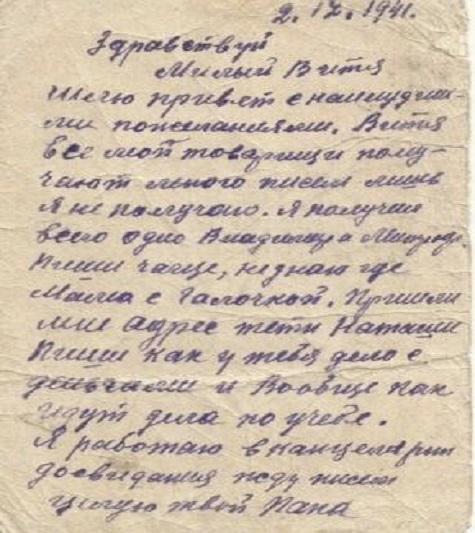 2. 12. 1941.
Здравствуй
Милый Витя
Шлю привет с наилучши-
ми пожеланиями. Витя
все мои товарищи полу-
чают много писем лишь
я не получаю. Я получил
всего одно
Пиши чаще, не знаю где
Мама с Галочкой. Пришли
мне адрес тети Наташи
Пиши как у тебя дело с
и вообще как
идут дела по учебе.
Я работаю в канцелярии
досвидания жду писем
целую твой Папа